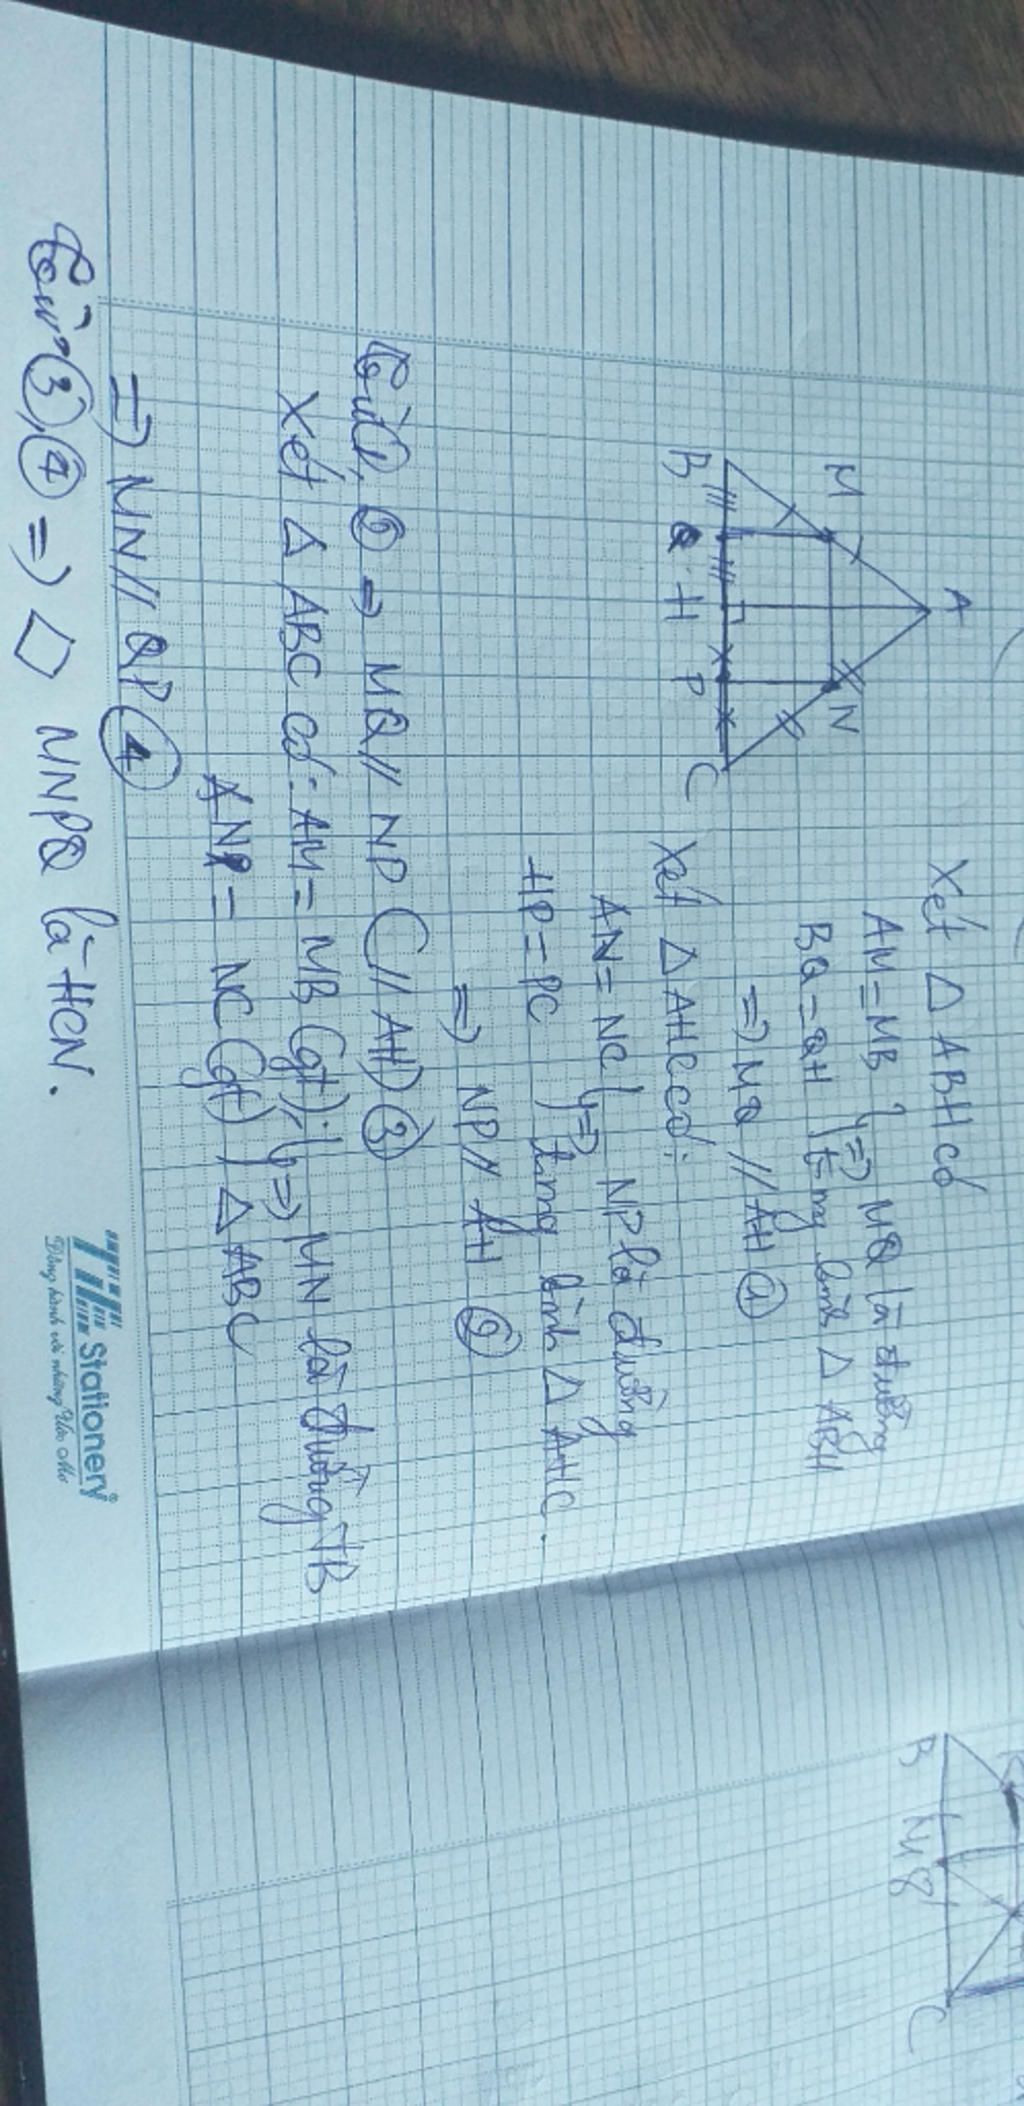 A
M
N
B
Q
H
P
C
Xét Δ ABH có
AM = MB } => MQ là đường
BQ = QH } tmg bình Δ ABH
=> MQ // AH ①
Xét Δ AHC có:
AN = NC } => NP là đường
HP = PC } tmg bình Δ AHC.
=> NP // AH ②
Từ 1, ② => MQ // NP (// AH) ③
Xét Δ ABC có: AM = MB (gt); } => MN là đường TB
AN = NC (gt) } Δ ABC
=> MN // QP ④
Từ ③, ④ => ▱ MNPQ là HCN.
Stationery
Đồng hành với những Ước Mơ
B
M
8
C